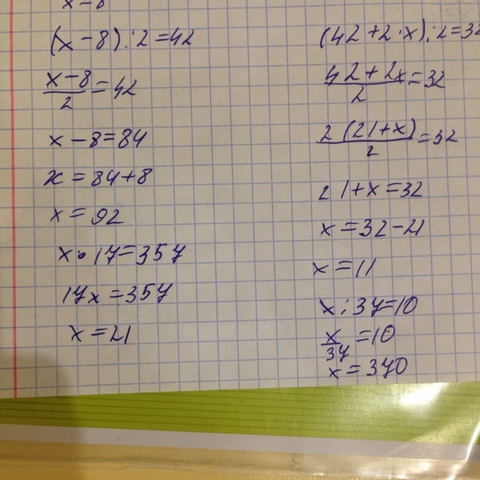 x-8
(x-8):2=42
x-8/2=42
x-8=84
x=84+8
x=92
x•17=357
17x=357
x=21
(42+2·x):2=32
42+2x/2=32
2(21+x)/2=32
21+x=32
x=32-21
x=11
x:37=10
x/37=10
x=370